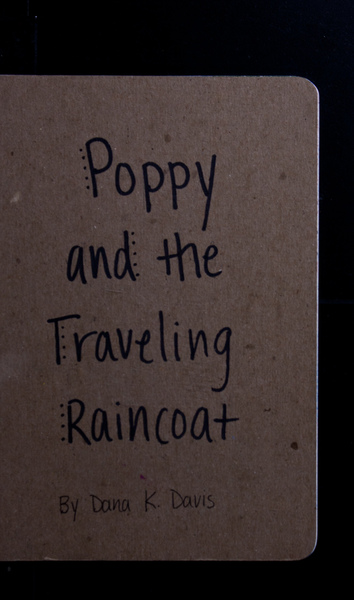 Poppy
and the
Traveling
Raincoat
By Dana K. Davis